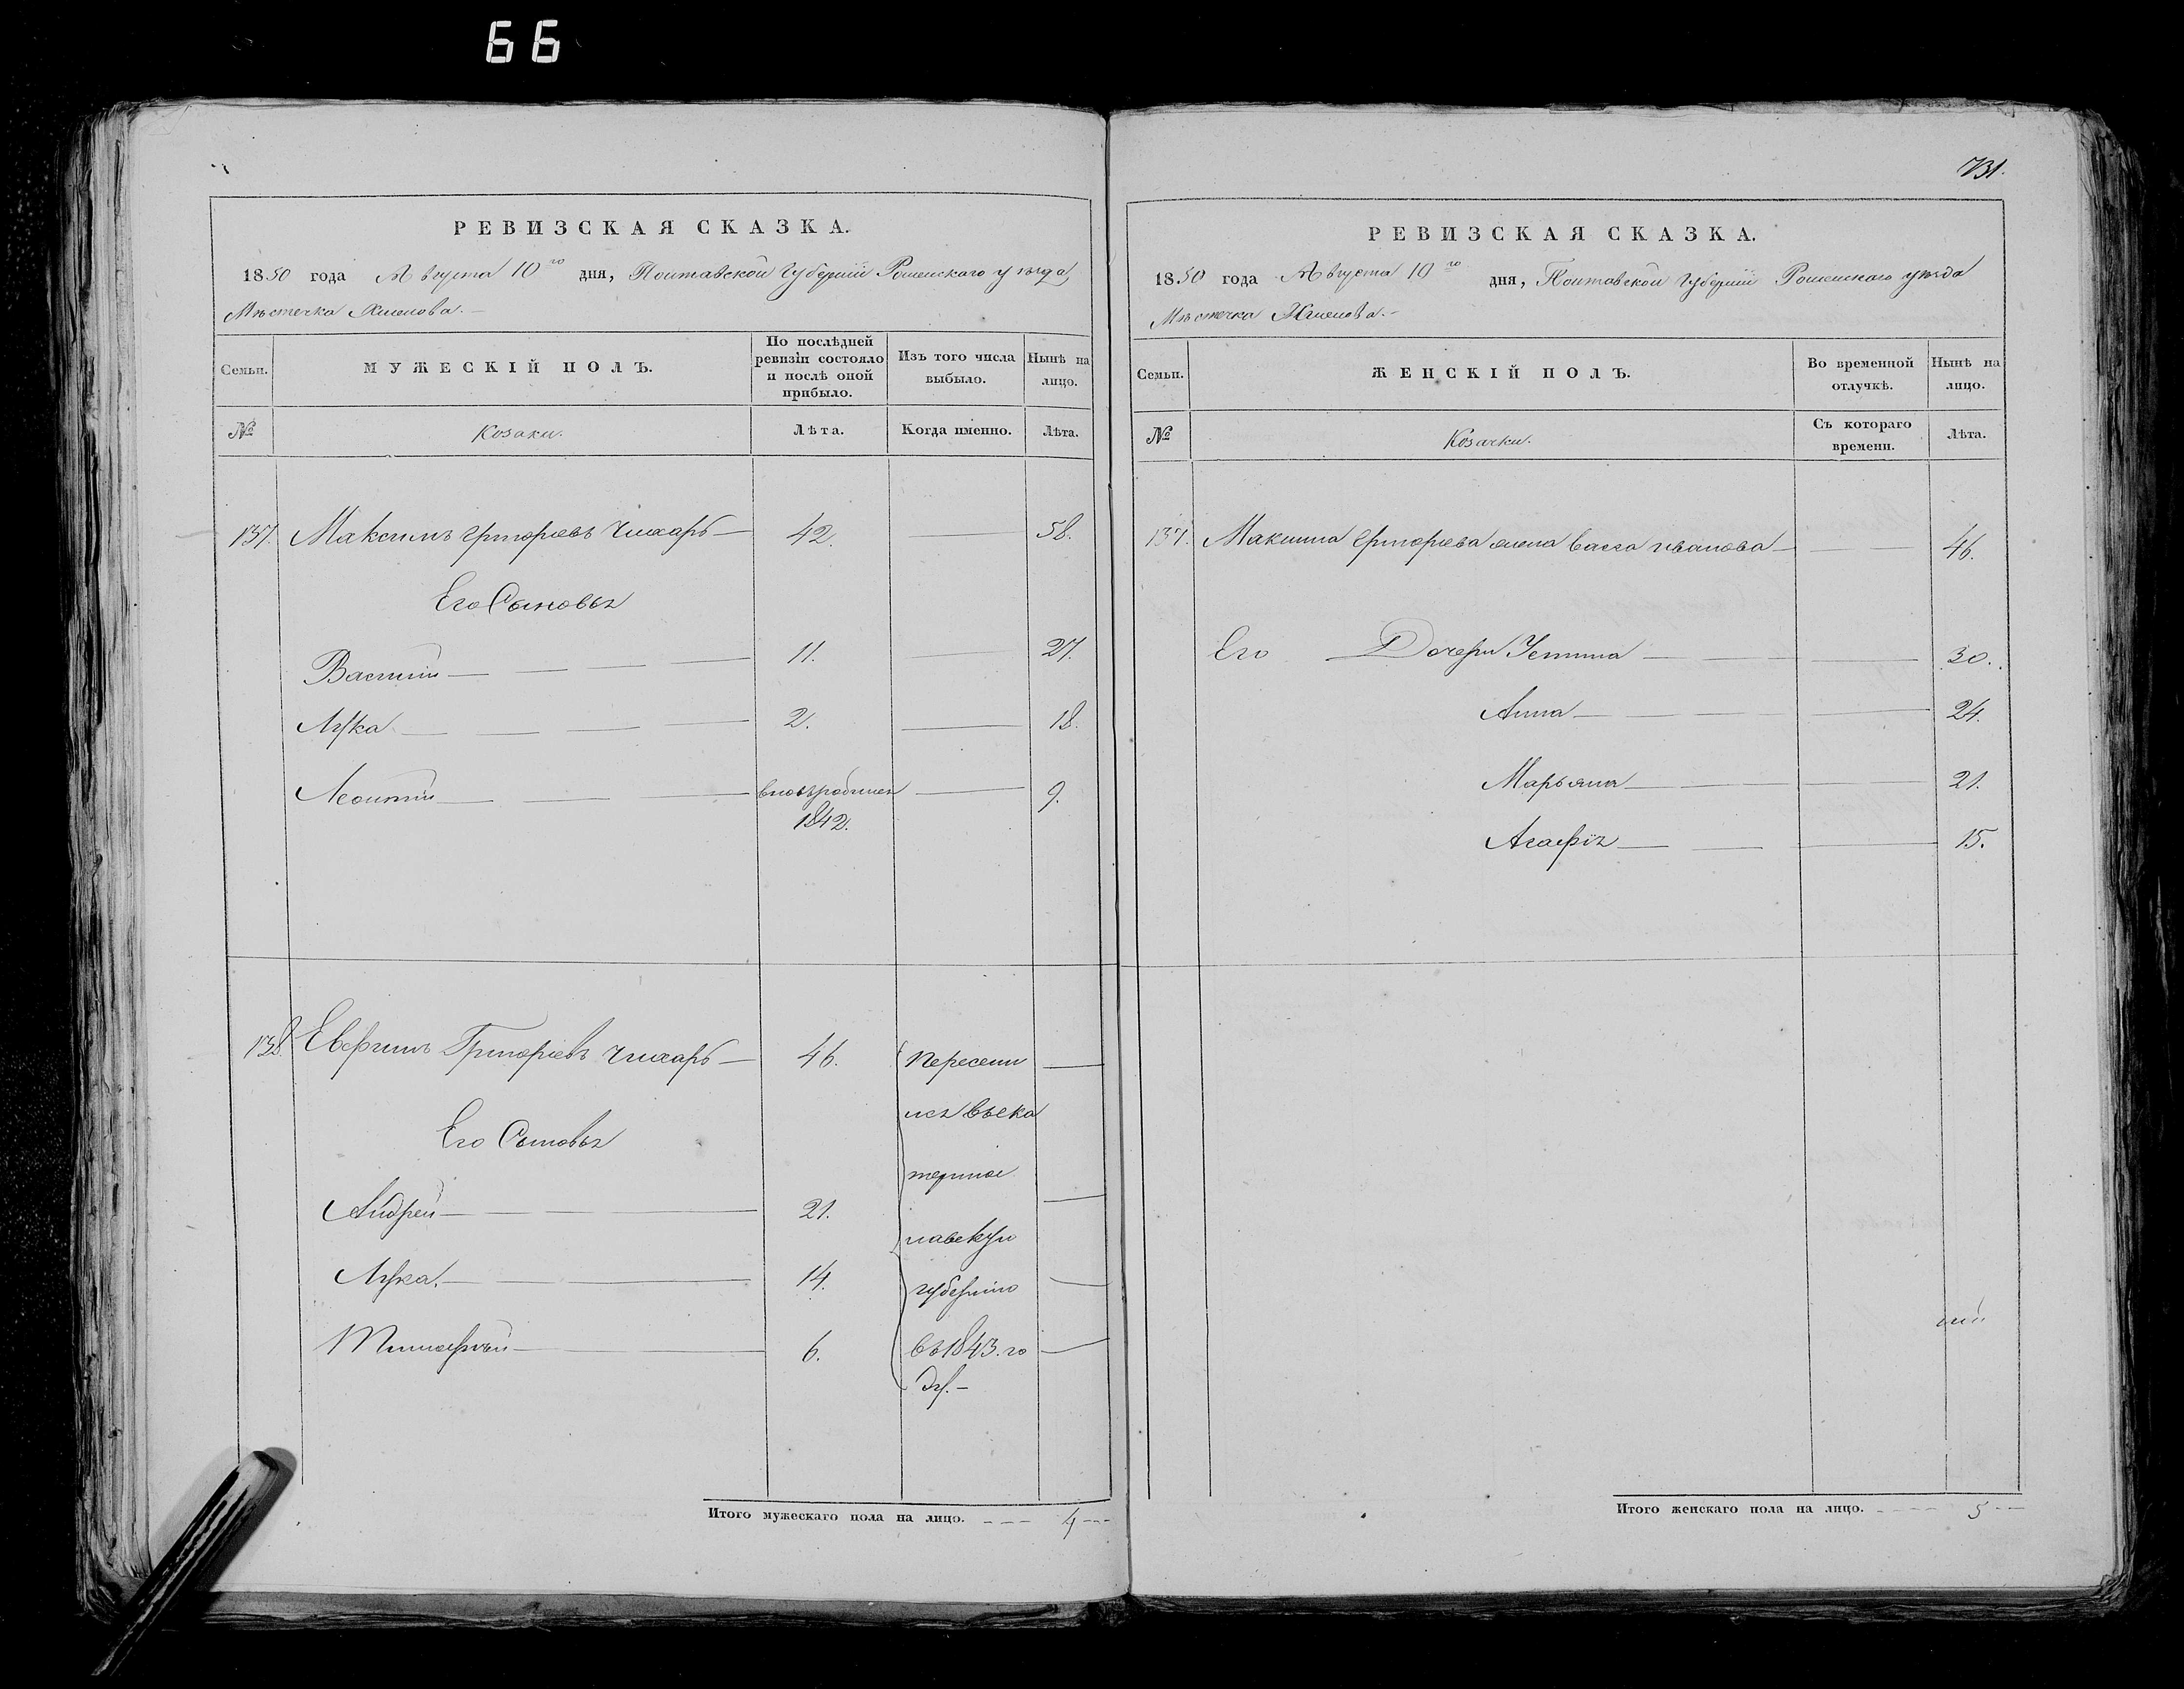 66
РЕВИЗСКАЯ СКАЗКА.
1850 года Августа 10го дня, Полтавской Губерніи Роменскаго уѣзда
Мѣстечка Хмелова.
Семьи.
МУЖЕСКІЙ ПОЛЪ.
По послѣдней ревизіи состояло и послѣ оной прибыло.
Изъ того числа выбыло.
Нынѣ на лицо.
№
Козаки.
Лѣта.
Когда именно.
Лѣта.
137. Максимъ Григорьевъ Чихарь 42. 58.
Его Сыновья
Василій 11. 27.
Лука 2. 18.
Леонтій вновьрожденъ 9.
1842.
138. Евфимъ Григоріевъ Чихарь 46. Пересели
Его Сыновья
лся въ Ека
терино
Андрей 21.
славскую
Лука. 14. губернію
Тимофѣй 6. въ 1843. го
ду.
Итого мужескаго пола на лицо. 4
131.
РЕВИЗСКАЯ СКАЗКА.
1850 года Августа 10го дня, Полтавской Губерніи Роменскаго уѣзда
Мѣстечка Хмелова.
Семьи.
ЖЕНСКІЙ ПОЛЪ.
Во временной отлучкѣ.
Нынѣ на лицо.
№
Козачки.
Съ котораго времени.
Лѣта.
137. Максима Григорьева жена Васса Иванова 46.
Его Дочери Устина 30.
Анна 24.
Марьяна 21.
Агафія 15.
Итого женскаго пола на лицо. 5